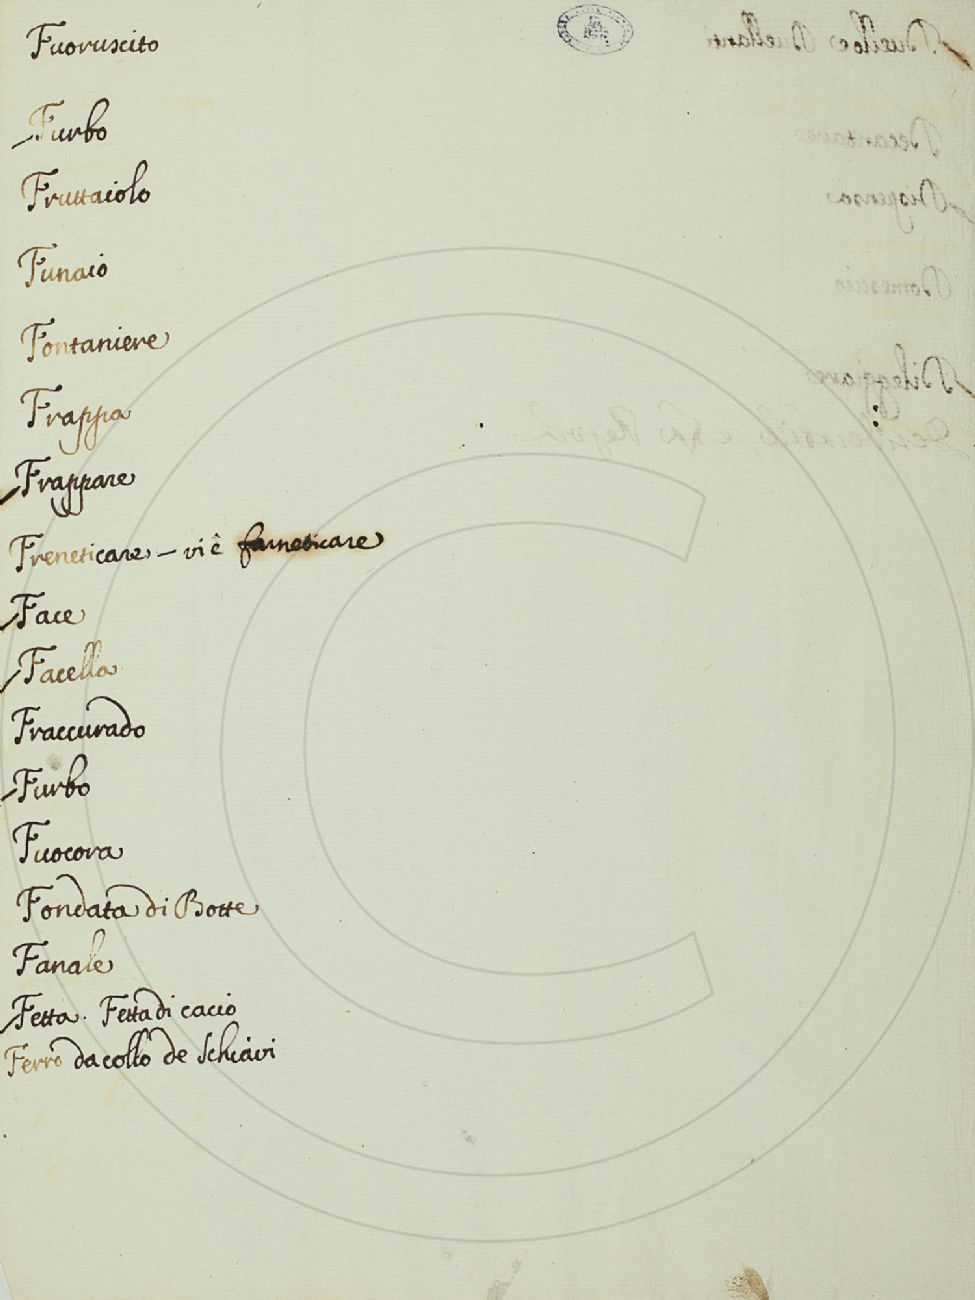 Fuoruscito
Furbo
Fruttaiolo
Funaio
Fontaniere
Frappa
Frappare
Freneticare – vi è farneticare
Face
Facella
Fraccurado
Furbo
Fuocora
Fondata di Botte
Fanale
Fetta. Fetta di cacio
Ferro da collo de Schiavi
Duello e Duellanti
Decantare
Dispensa
Domestico
Dileggiare